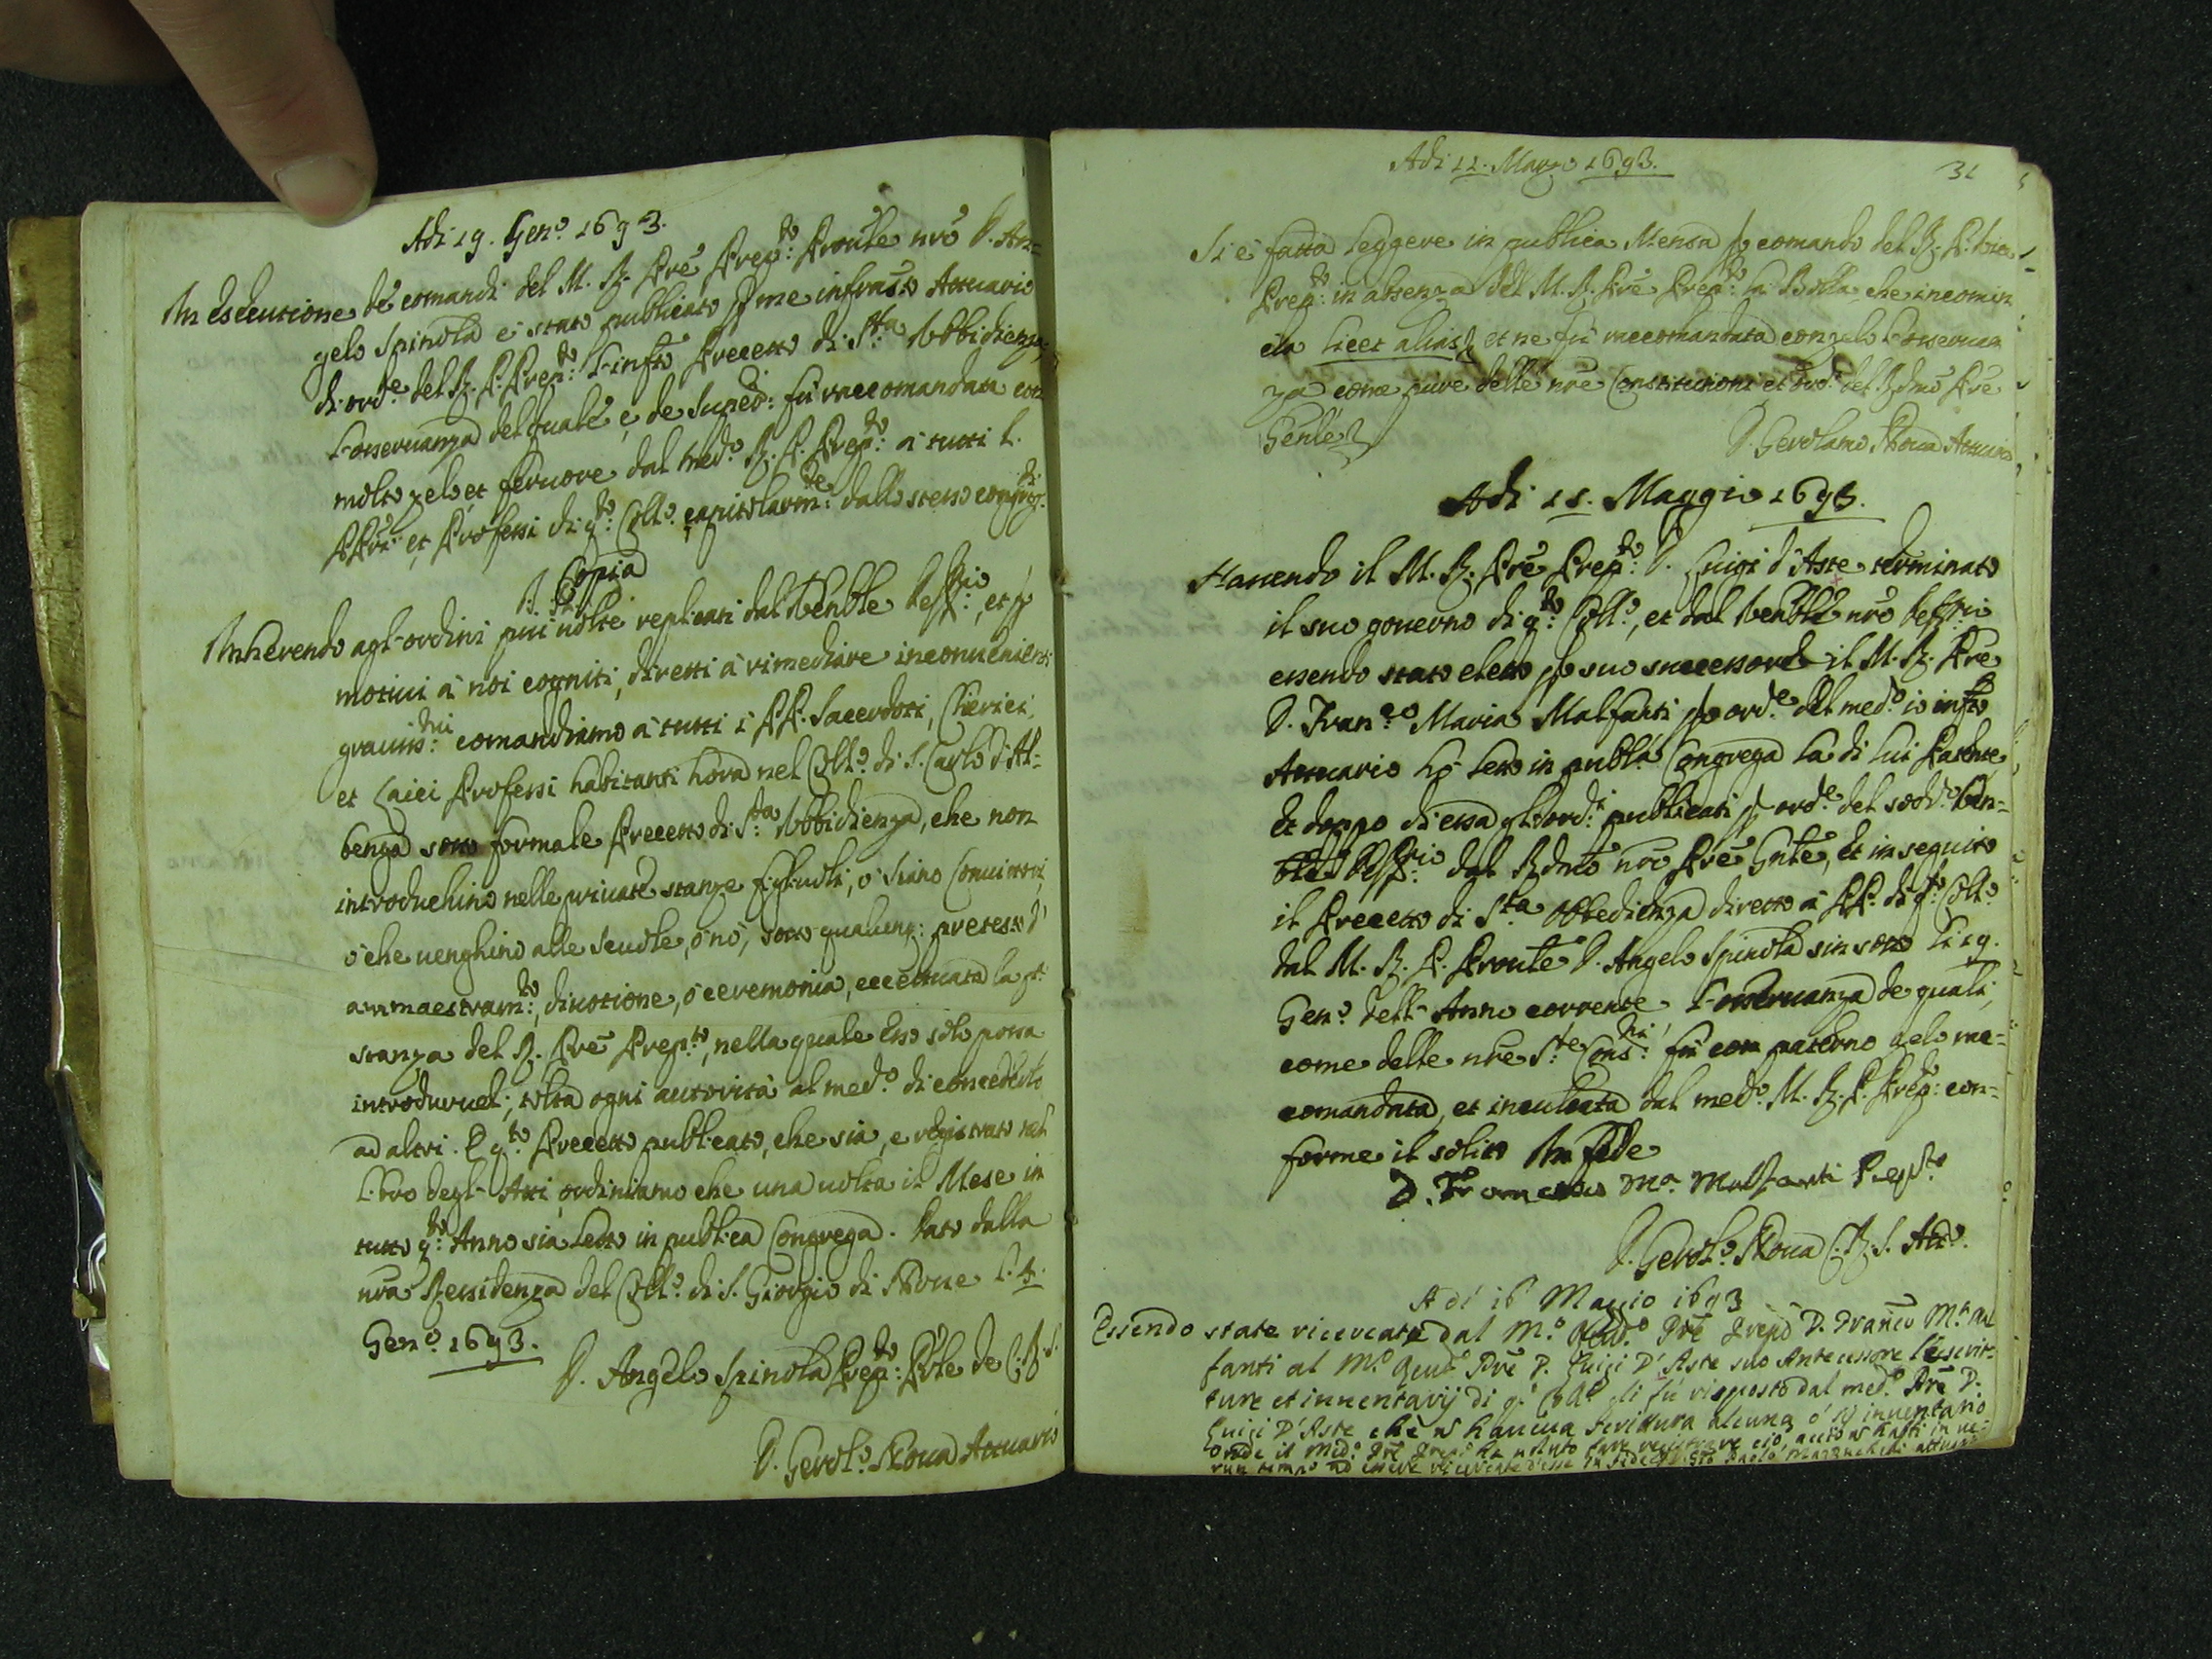 Adi 19. Gen.o 1693.
In Essecutione de comandi del M. R. Pre Prep.to Proule nro D. An=
gelo Spinola è stato publicato p me infras.to Attuario
di ord.e del R. P. Prep.to l'infto Precetto di S.ta Vbbidienza,
l'osservanza del quale, e de Super: fù raccomandata con
molto zelo, et fervore dal med.o R. P. Prep.to à tutti l.
PPri et Professi di q.to Coll.o capitolarm.te dallo stesso congreg.ti
Copia
Inherendo agl'ordini più volte replicati dal Venble Deff.rio, et p
motivi à noi cogniti, diretti à rimediare inconvenienti
graviss.mi comandiamo à tutti i PP. Sacerdoti, Chierici,
et Laici Professi habitanti hora nel Coll.o di S. Carlo d'Al=
benga sotto formale Precetto di S.ta Vbbidienza, che non
introduchino nelle private stanze figliuoli, ò siano Convittori,
ò che venghino alle Scuole, ò nò, sotto qualunq: pretesto d'
ammaestram.to, divotione, ò ceremonia, eccettuata la p.a
stanza del R. Pre Prep.to, nella quale Esso solo possa
introdurvel:, tolta ogni autorità al med.o di concederlo
ad altri. E q.to Precetto publicato, che sia, e registrato nel
Libro degl'Atti, ordiniamo che una volta il Mese in
tutto q.to Anno sia Letto in publica Congrega. Dato dalla
nra Ressidenza del Coll.o di S. Giorgio di Nove l. 4.
Gen.o 1693.
D. Angelo Spinola Prep.to Prle de C. R. S.
D. Gerol.o Rova Attuario
Adi 11. Marzo 1693. 31
Si è fatta leggere in publica Mensa p comando del R. P. Vice
Prep.to in absenza del M. R. Pre Prep.to la Bolla, che incomin
cia Licet alias, et ne fù raccomandata con zelo l'osservan
za come pure delle nre Constitutioni et ord.i del Rdmo Pre
Genle
D. Gerolamo Rova Attuario
Adi 15. Maggio 1693.
Havendo il M. R. Pre Prep.to D. Luigi d'Aste terminato
il suo governo di q.to Coll.o, et dal Venble nro Deff.rio
essendo stato eletto p suo successore il M. R. Pre
D. Fran.co Maria Malfanti p ord.e del med.o io infto
Attuario hò letto in publa Congrega la di lui Patente
Et doppo di essa gl'ord.i publicati p ord.e del sodd.o Ven=
ble Deff.rio dal Rdmo nro Pre Gnle, Et in seguito
il Precetto di S.ta Obbedienza diretto à PP. di q.to Coll.o
dal M. R. P. Proule D. Angelo Spinola sin sotto li 19.
Gen.o dell'Anno corrente. L'osservanza de quali,
come delle nre S.te Cons.ni fù con paterno zelo rac=
comandata, et inculcata dal med.o M. R. P. Prep: con=
forme il solito In fede
D. Francesco M.a Malfanti Prep.to
D. Gerol.o Rova C. R. S. Att.o
Adi 16 Maggio 1693
Essendo state ricercate dal M.o Rev.o Pre Prepo D. Franco M.a Mal
fanti al M.o Rev.o Pre D. Luigi D'Aste suo Antecessore le scrit=
ture et inventarij di q.o Coll.o gli fù risposto dal med.o Pre D.
Luigi D'Aste che n haveva scrittura alcuna ò sij inventario
onde il Med.o Pre Prep.o hà voluto fare registrare ciò, acciò n habbi in ve=
run tempo ad essere ricercato d'esse In fede D. Gio Paolo attuario